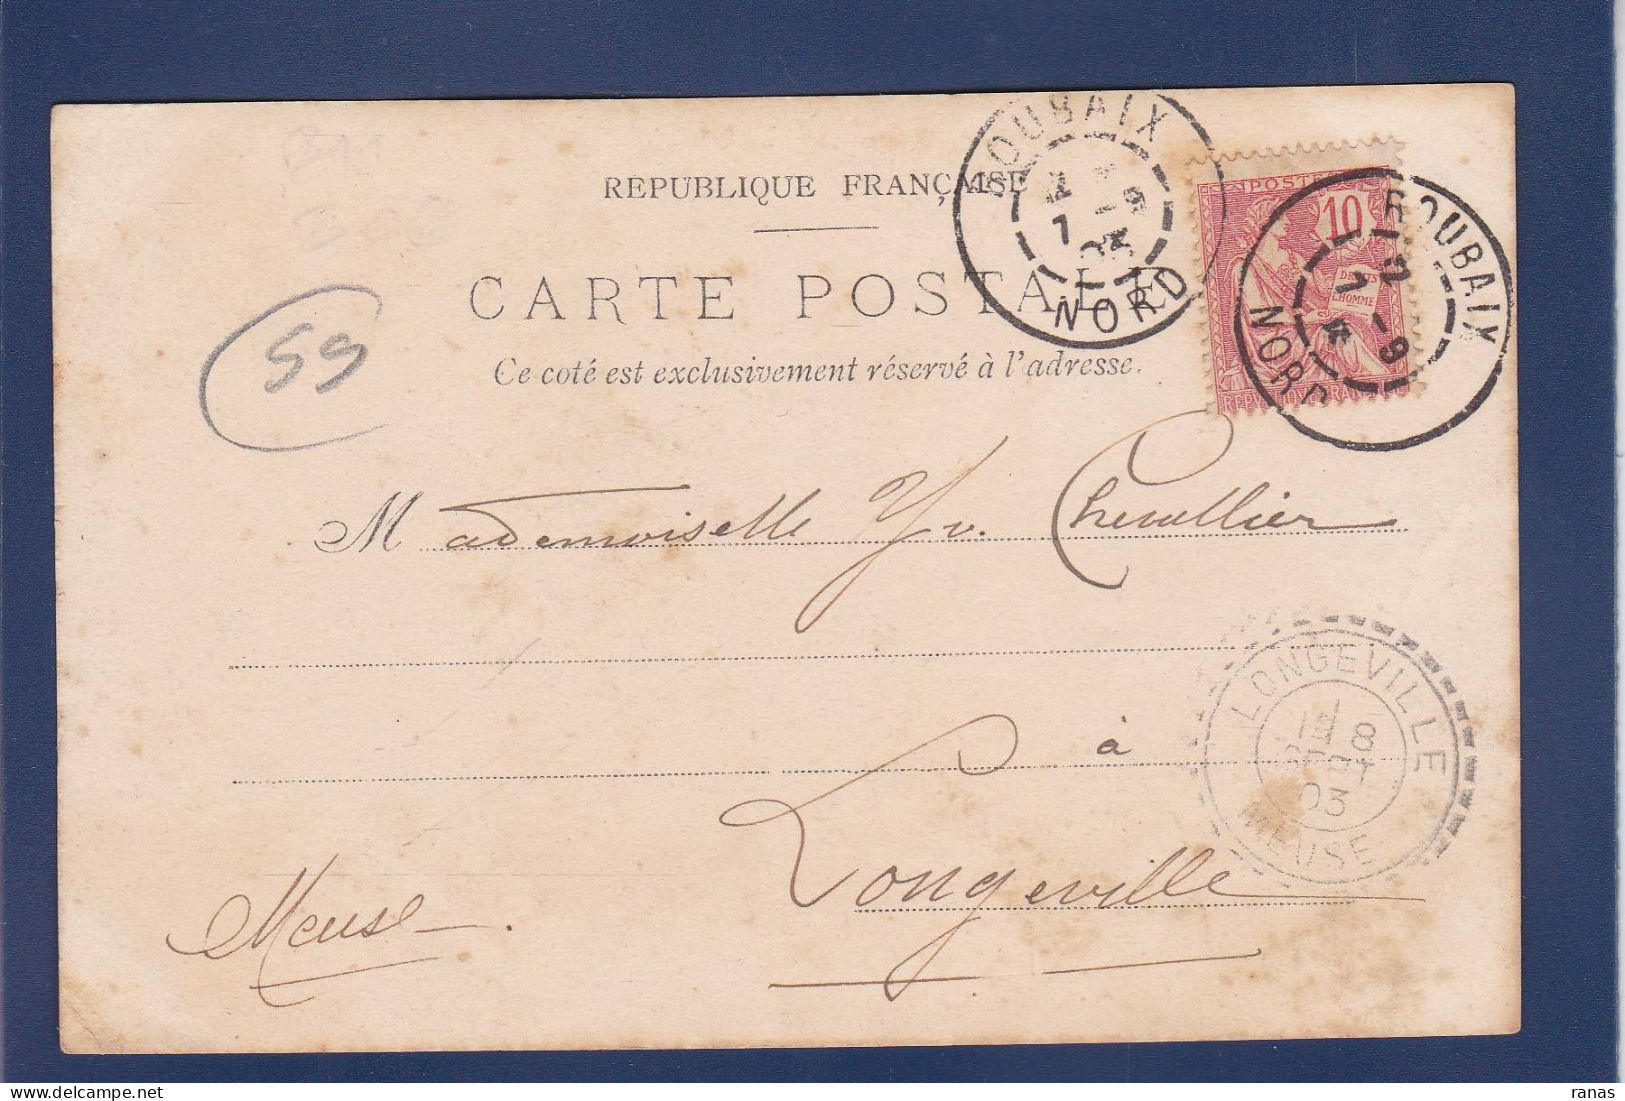 RÉPUBLIQUE FRANÇAISE
CARTE POSTALE
Ce coté est exclusivement réservé à l'adresse.
ROUBAIX
NORD
POSTES
10
DROITS
DE
L'HOMME
REPUBLIQUE FRANÇAISE
ROUBAIX
7 -9
NORD
59
Mademoiselle Yv. Chevallier
à
Longeville
Meuse.
LONGEVILLE
8
SEPT
03
MEUSE
ranas